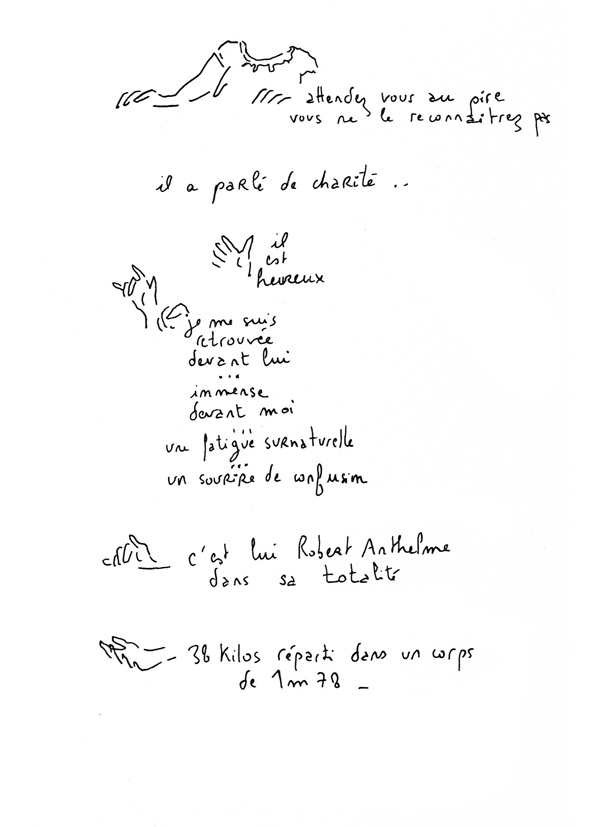 attendez vous au pire
vous ne le reconnaitrez pas
il a parlé de charité ..
il
est
heureux
je me suis
retrouvée
devant lui
...
immense
devant moi
...
une fatigue surnaturelle
...
un sourire de confusion
c'est lui Robert Anthelme
dans sa totalité
38 Kilos réparti dans un corps
de 1m78 _